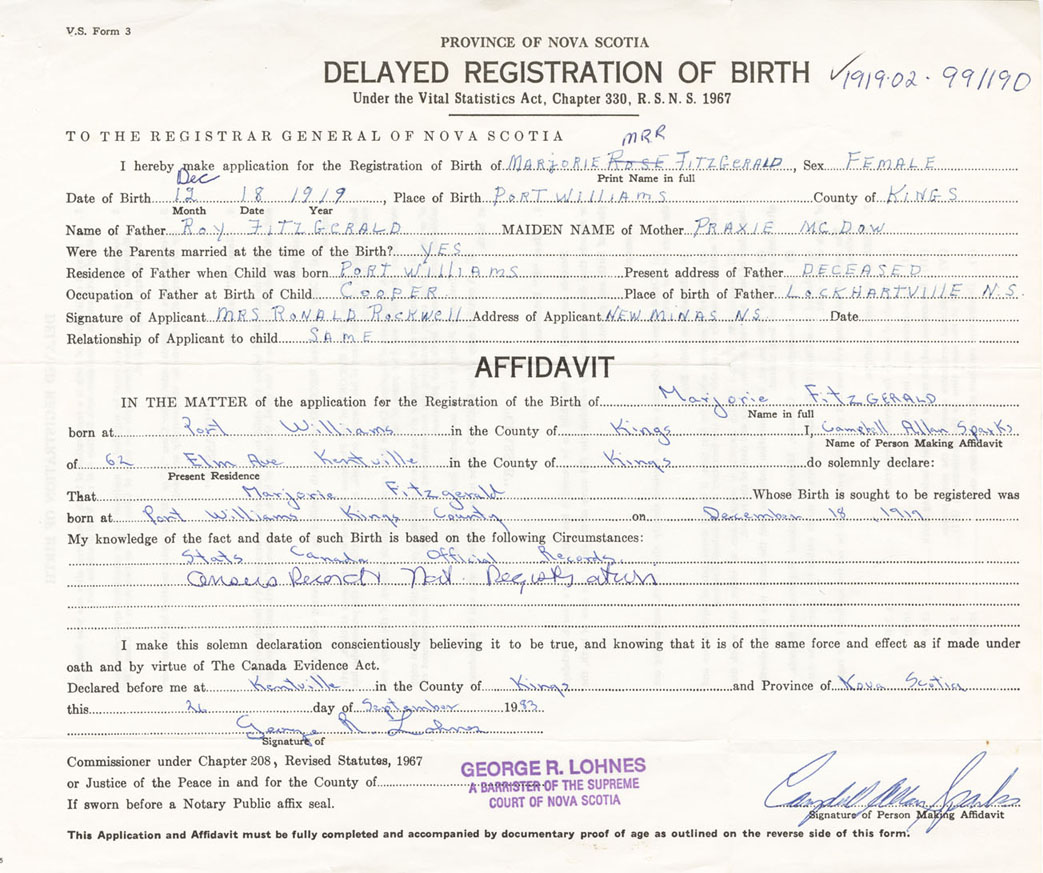 V.S. Form 3
PROVINCE OF NOVA SCOTIA
DELAYED REGISTRATION OF BIRTH ✓1919-02-991190
Under the Vital Statistics Act, Chapter 330, R.S.N.S. 1967
TO THE REGISTRAR GENERAL OF NOVA SCOTIA
MRR
I hereby make application for the Registration of Birth of MARJORIE ROSE FITZGERALD, Sex FEMALE
Print Name in full
Dec
Date of Birth 12 18 1919, Place of Birth PORT WILLIAMS County of KINGS
Month Date Year
Name of Father ROY FITZGERALD MAIDEN NAME of Mother PRAXIE MCDOW
Were the Parents married at the time of the Birth? YES
Residence of Father when Child was born PORT WILLIAMS Present address of Father DECEASED
Occupation of Father at Birth of Child COOPER Place of birth of Father LOCKHARTVILLE N.S.
Signature of Applicant MRS RONALD ROCKWELL Address of Applicant NEW MINAS NS Date
Relationship of Applicant to child SAME
AFFIDAVIT
IN THE MATTER of the application for the Registration of the Birth of Marjorie FITZGERALD
Name in full
born at Port Williams in the County of Kings I, Campbell Allan Sparks
Name of Person Making Affidavit
of 62 Elm Ave Kentville in the County of Kings do solemnly declare:
Present Residence
That Marjorie Fitzgerald Whose Birth is sought to be registered was
born at Port Williams Kings County on December 18, 1919
My knowledge of the fact and date of such Birth is based on the following Circumstances:
Stats Canada Official Records.
Census Records Nat. Registration
I make this solemn declaration conscientiously believing it to be true, and knowing that it is of the same force and effect as if made under
oath and by virtue of The Canada Evidence Act.
Declared before me at Kentville in the County of Kings and Province of Nova Scotia
this 26 day of September 1983
George R. Lohnes
Signature of
Commissioner under Chapter 208, Revised Statutes, 1967
or Justice of the Peace in and for the County of
If sworn before a Notary Public affix seal.
GEORGE R. LOHNES
A BARRISTER OF THE SUPREME
COURT OF NOVA SCOTIA
Campbell Allan Sparks
Signature of Person Making Affidavit
This Application and Affidavit must be fully completed and accompanied by documentary proof of age as outlined on the reverse side of this form.